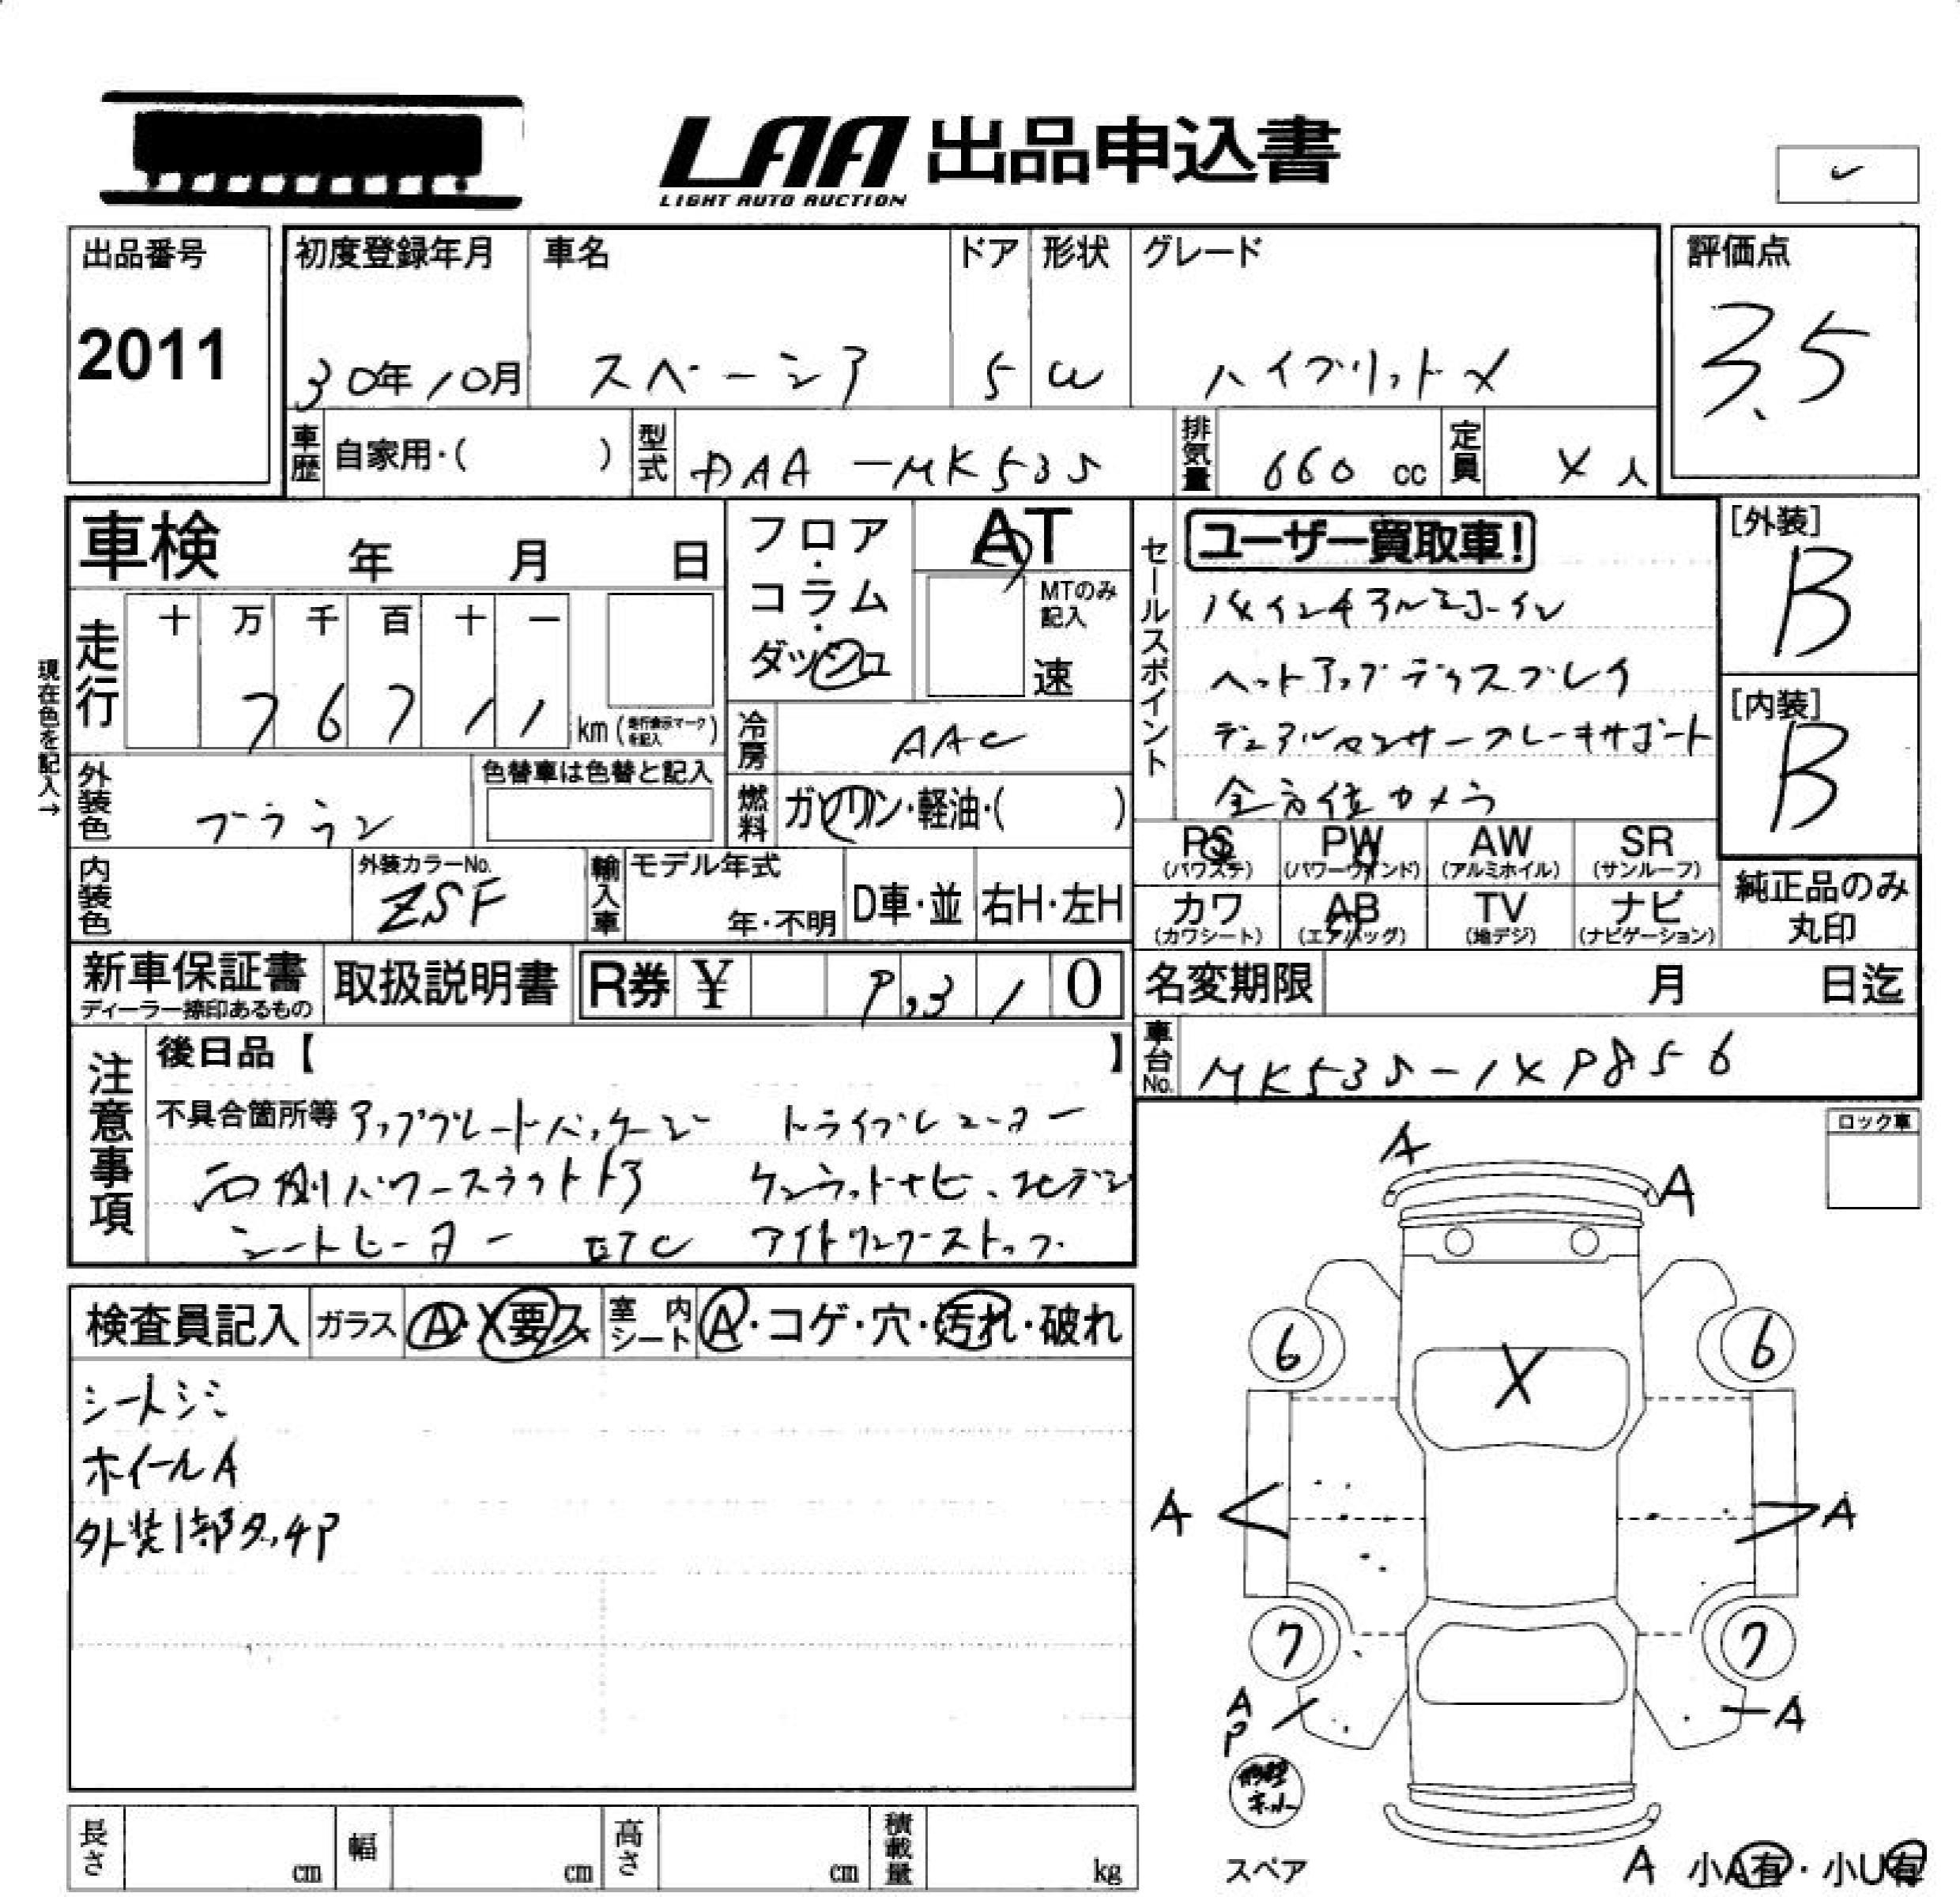 LAA 出品申込書
LIGHT AUTO AUCTION
出品番号 初度登録年月 車名 ドア 形状 グレード 評価点
2011 30年10月 スペーシア 5 W ハイブリットX 3.5
車歴 自家用・( ) 型式 DAA-MK53S 排気量 660 cc 定員 4人
車検 年 月 日
フロア・コラム・ダッシュ
AT
MTのみ記入
速
セールスポイント
ユーザー買取車!
15インチアルミホイル
ヘットアップディスプレイ
デュアルセンサーブレーキサポート
全方位カメラ
[外装]
B
[内装]
B
現在色を記入→
走行 十 万 千 百 十 一
7 6 7 1 1 km (走行表示マークを記入)
冷房 AAC
外装色 ブラウン 色替車は色替と記入
燃料 ガソリン・軽油・( )
内装色 外装カラーNo. ZSF
輸入車 モデル年式 年・不明 D車・並 右H・左H
PS (パワステ) PW (パワーウインド) AW (アルミホイル) SR (サンルーフ)
カワ (カワシート) AB (エアバッグ) TV (地デジ) ナビ (ナビゲーション)
純正品のみ丸印
新車保証書 ディーラー捺印あるもの 取扱説明書 R券 ¥ 9,310
名変期限 月 日迄
車台No. MK53S-149856
注意事項
後日品【 】
不具合箇所等 アップグレードパッケージ
両側パワースライドドア ケンウッドナビ、フルセグ
シートヒーター ETC アイドリングストップ
ロック車
検査員記入 ガラス A・X要ス 室内シート A・コゲ・穴・汚れ・破れ
シートシミ
ホイールA
外装1部タッチP
A
A
6 X 6
A A
7 7
A
P
A
スペア
A 小A有・小U有
長さ cm 幅 cm 高さ cm 積載量 kg